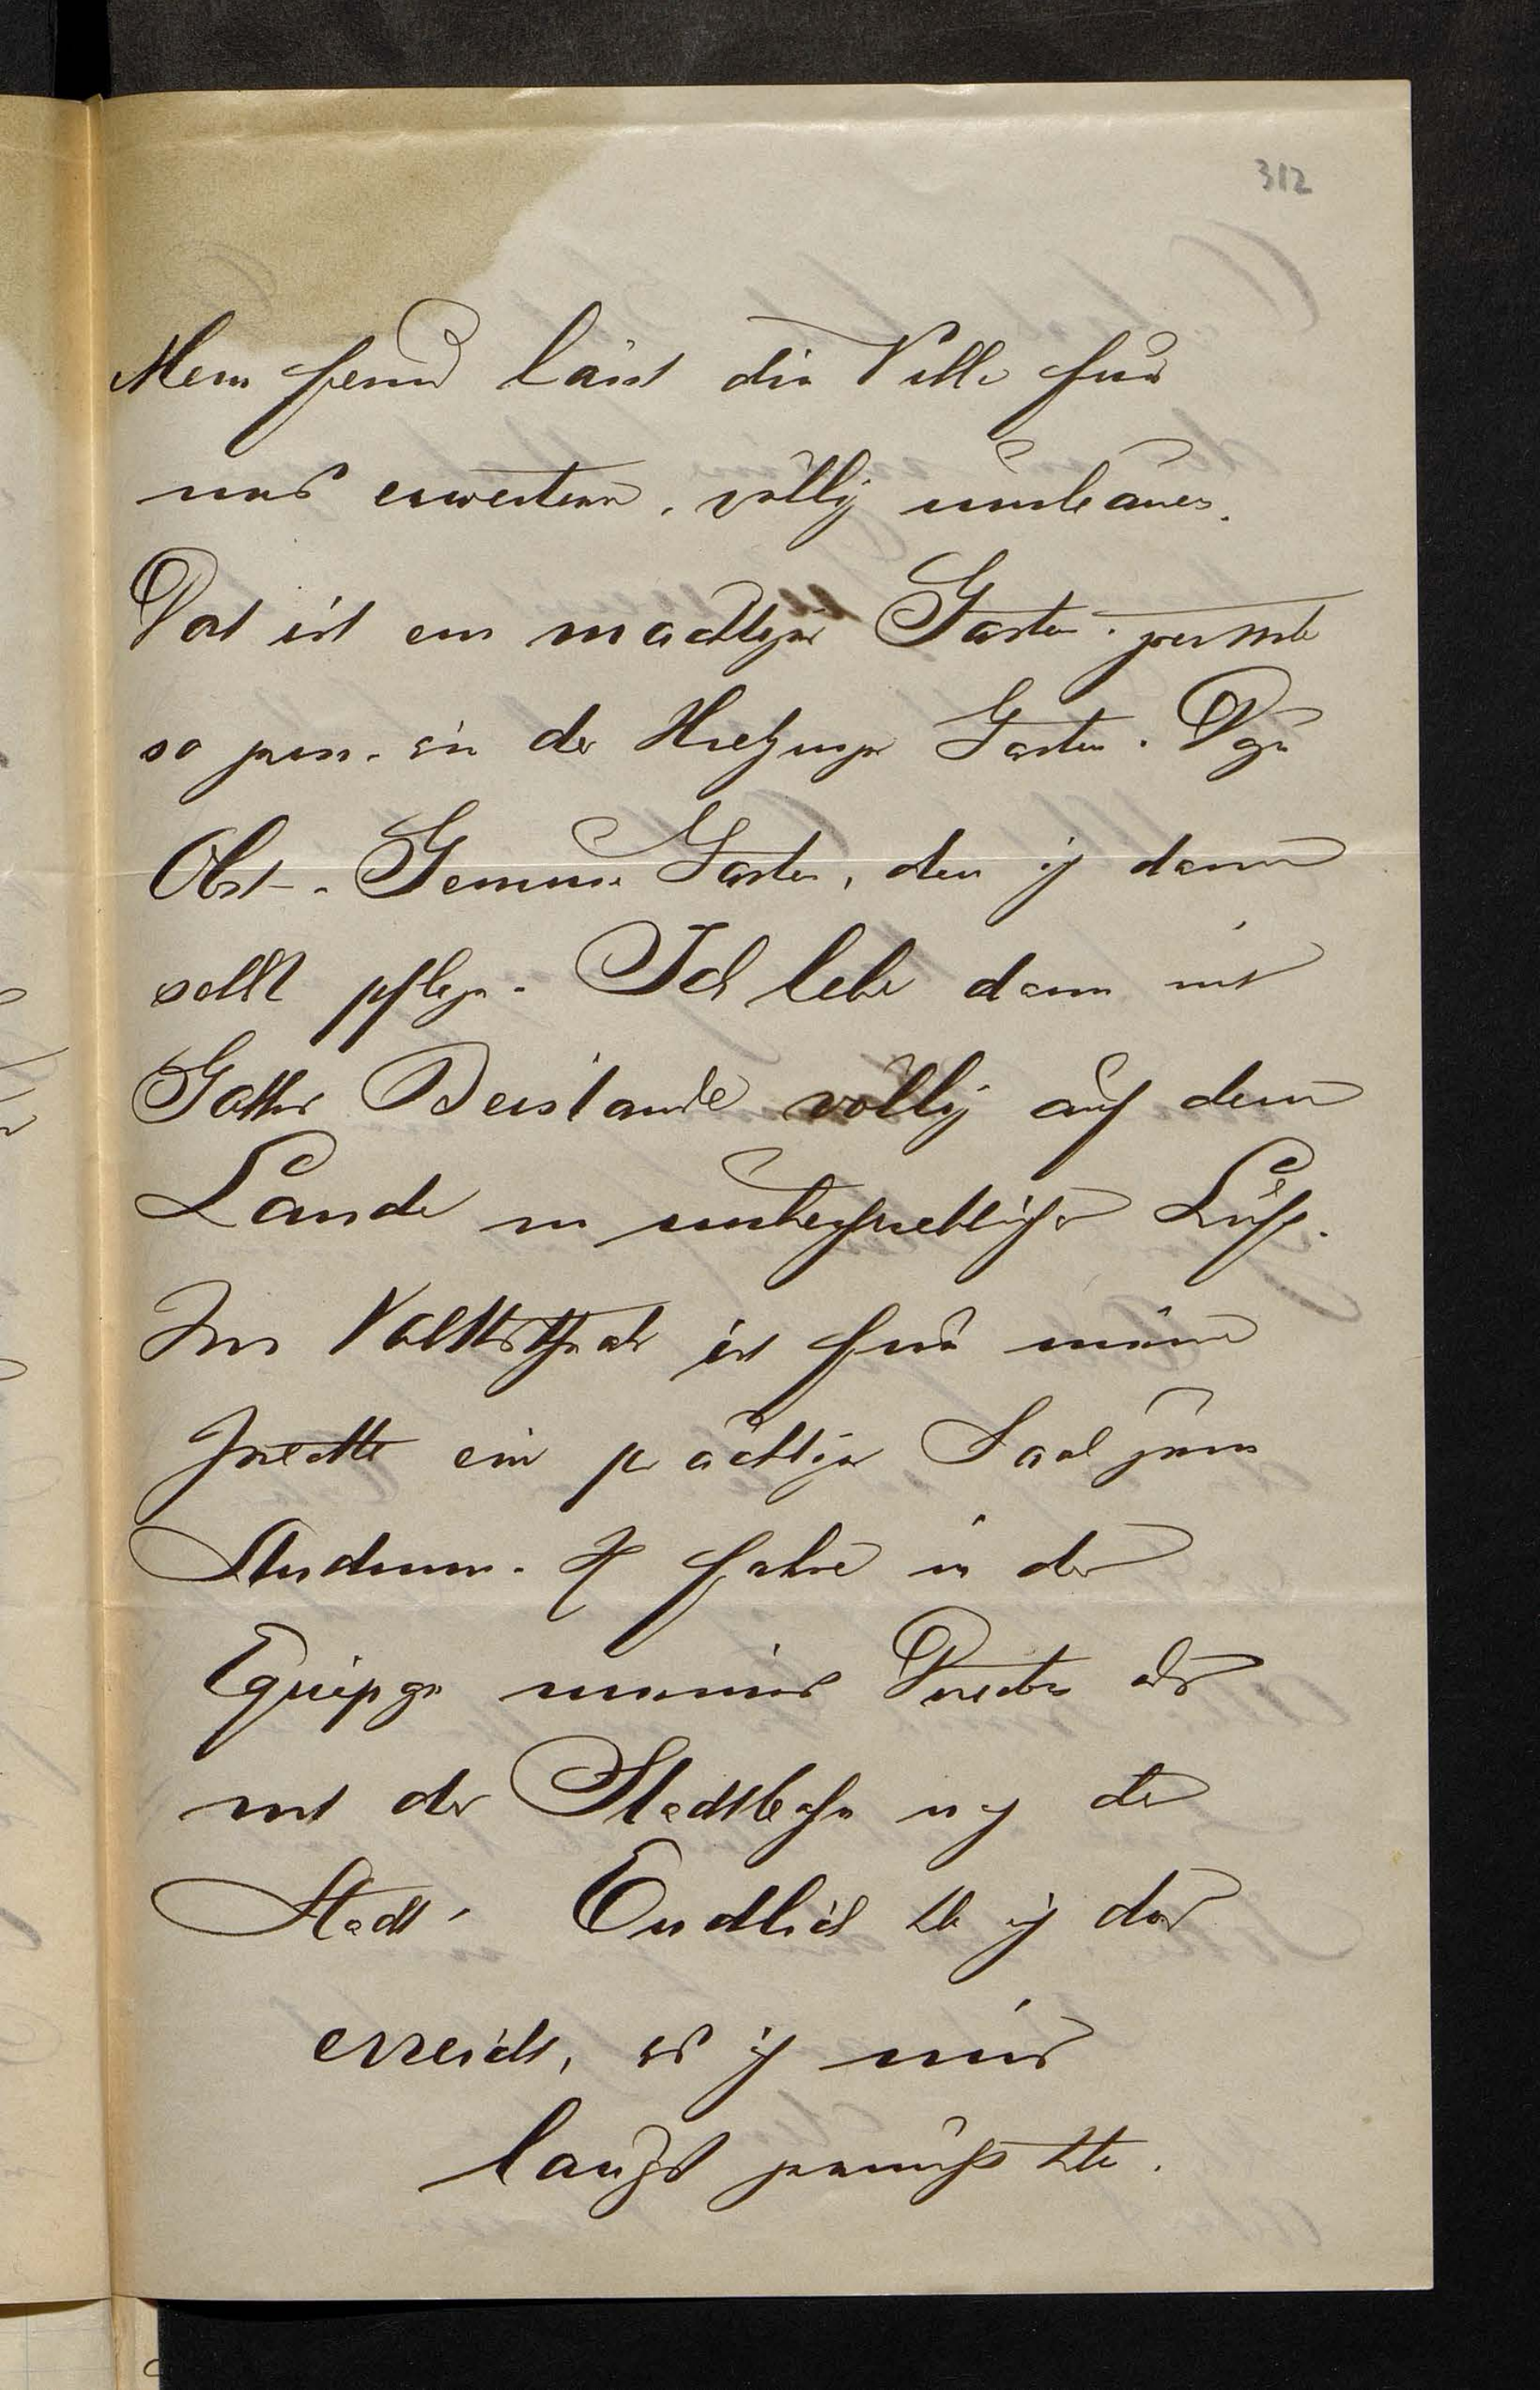 312
Mein Freund lässt die Villa für
uns erweitern, völlig umbauen.
Dort ist ein mächtiger Garten, gewiss
so gross wie der Hietzinger Garten. Dazu
Obst- Gemüse Garten, den ich dann
selbst pflege. Ich lebe dann mit
Gottes Beistande völlig auf dem
Lande in unbeschreiblicher Luft.
Im Volkstheater ist für meine
Zwecke ein prächtiger Saal zum
Studium. Ich fahre in der
Equipage meines Directors oder
mit der Stadtbahn in die
Stadt. Endlich habe ich das
erreicht, was ich mir
längst gewünscht hatte.